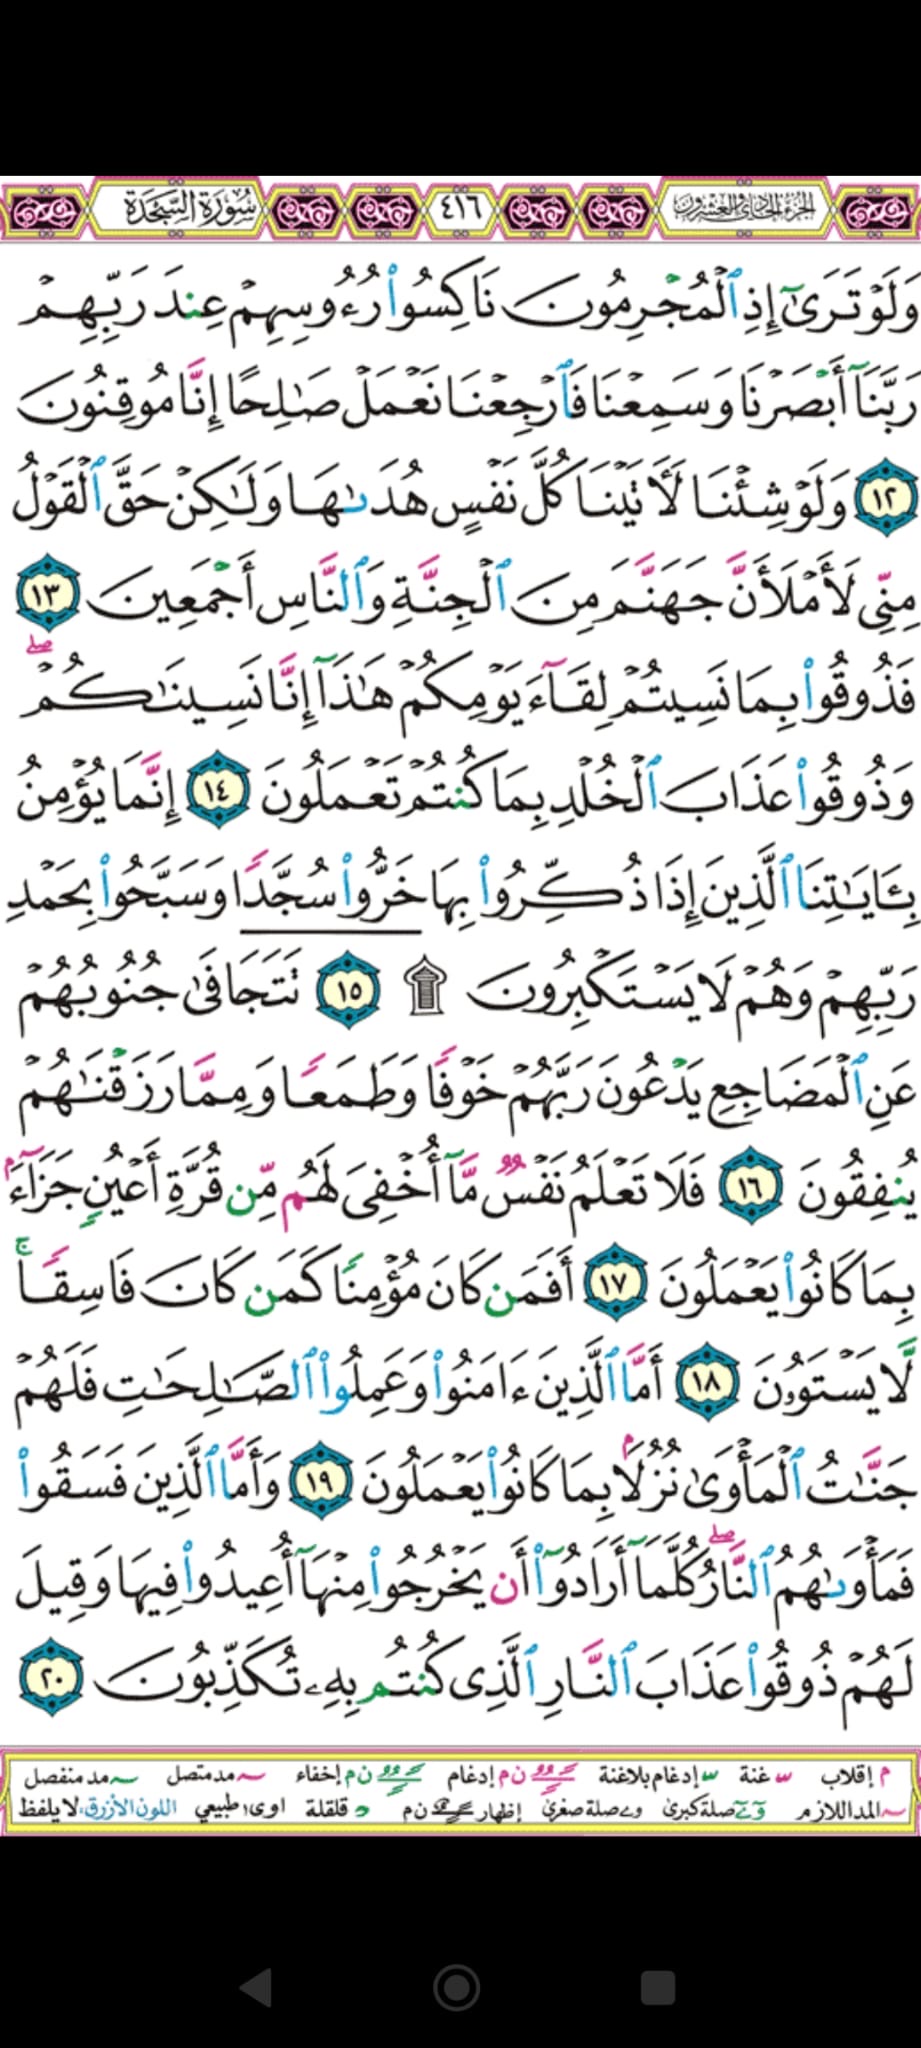 الجزء الحادي والعشرون ٤١٦ سُورَةُ السَّجْدَةِ
وَلَوْ تَرَىٰٓ إِذِ ٱلْمُجْرِمُونَ نَاكِسُوا۟ رُءُوسِهِمْ عِندَ رَبِّهِمْ
رَبَّنَآ أَبْصَرْنَا وَسَمِعْنَا فَٱرْجِعْنَا نَعْمَلْ صَـٰلِحًا إِنَّا مُوقِنُونَ
١٢ وَلَوْ شِئْنَا لَـَٔاتَيْنَا كُلَّ نَفْسٍ هُدَىٰهَا وَلَـٰكِنْ حَقَّ ٱلْقَوْلُ
مِنِّى لَأَمْلَأَنَّ جَهَنَّمَ مِنَ ٱلْجِنَّةِ وَٱلنَّاسِ أَجْمَعِينَ ١٣
فَذُوقُوا۟ بِمَا نَسِيتُمْ لِقَآءَ يَوْمِكُمْ هَـٰذَآ إِنَّا نَسِينَـٰكُمْ ۖ
وَذُوقُوا۟ عَذَابَ ٱلْخُلْدِ بِمَا كُنتُمْ تَعْمَلُونَ ١٤ إِنَّمَا يُؤْمِنُ
بِـَٔايَـٰتِنَا ٱلَّذِينَ إِذَا ذُكِّرُوا۟ بِهَا خَرُّوا۟ سُجَّدًا وَسَبَّحُوا۟ بِحَمْدِ
رَبِّهِمْ وَهُمْ لَا يَسْتَكْبِرُونَ ۩ ١٥ تَتَجَافَىٰ جُنُوبُهُمْ
عَنِ ٱلْمَضَاجِعِ يَدْعُونَ رَبَّهُمْ خَوْفًا وَطَمَعًا وَمِمَّا رَزَقْنَـٰهُمْ
يُنفِقُونَ ١٦ فَلَا تَعْلَمُ نَفْسٌ مَّآ أُخْفِىَ لَهُم مِّن قُرَّةِ أَعْيُنٍ جَزَآءًۢ
بِمَا كَانُوا۟ يَعْمَلُونَ ١٧ أَفَمَن كَانَ مُؤْمِنًا كَمَن كَانَ فَاسِقًا ۚ
لَّا يَسْتَوُۥنَ ١٨ أَمَّا ٱلَّذِينَ ءَامَنُوا۟ وَعَمِلُوا۟ ٱلصَّـٰلِحَـٰتِ فَلَهُمْ
جَنَّـٰتُ ٱلْمَأْوَىٰ نُزُلًۢا بِمَا كَانُوا۟ يَعْمَلُونَ ١٩ وَأَمَّا ٱلَّذِينَ فَسَقُوا۟
فَمَأْوَىٰهُمُ ٱلنَّارُ ۖ كُلَّمَآ أَرَادُوٓا۟ أَن يَخْرُجُوا۟ مِنْهَآ أُعِيدُوا۟ فِيهَا وَقِيلَ
لَهُمْ ذُوقُوا۟ عَذَابَ ٱلنَّارِ ٱلَّذِى كُنتُم بِهِۦ تُكَذِّبُونَ ٢٠
م إقلاب غنة إدغام بلاغنة ن م إدغام ن م إخفاء مد متصل مد منفصل
المد اللازم صلة كبرى صلة صغرى إظهار ن م قلقلة اوى، طبيعي اللون الأزرق: لا يلفظ